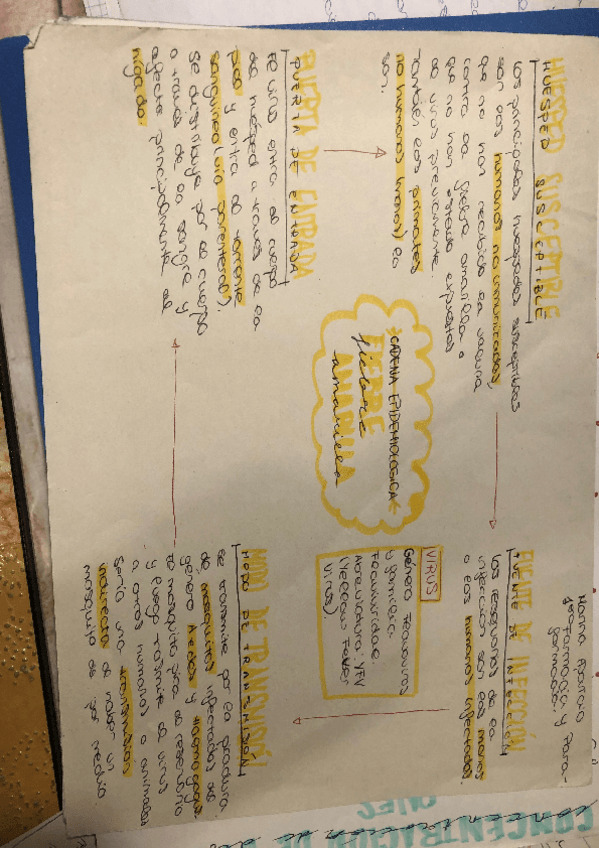 Marina Aparicio
1ero Farmacia y Para-
farmacia.
HUESPED SUSCEPTIBLE
HUESPED SUSCEPTIBLE
Los principales huespedes susceptibles
son los humanos no inmunizados,
que no han recibido la vacuna
contra la fiebre amarilla o
que no han estado expuestos
al virus previamente.
También los primates
no humanos (monos) lo
son.
FUENTE DE INFECCIÓN
FUENTE DE INFECCIÓN
Los reservorios de la
infección son los monos
o los humanos infectados.
*CADENA EPIDEMIOLOGICA*
FIEBRE
fiebre
AMARILLA
amarilla
VIRUS
Género Flavivirus
y familia
Flaviviridae.
Abreviatura: YFV
(Yellow Fever
Virus).
PUERTA DE ENTRADA
PUERTA DE ENTRADA
El virus entra al cuerpo
del huésped a través de la
piel y entra al torrente
sanguíneo (vía parenteral).
Se distribuye por el cuerpo
a través de la sangre y
afecta principalmente al
hígado.
MODO DE TRANSMISIÓN
MODO DE TRANSMISIÓN
Se transmite por la picadura
de mosquitos infectados del
género Aedes y Haemagogus.
El mosquito pica al reservorio
y luego trasmite el virus
a otros humanos o animales
Sería una transmisión
indirecta al haber un
mosquito de por medio
CONCENTRACIÓN DE